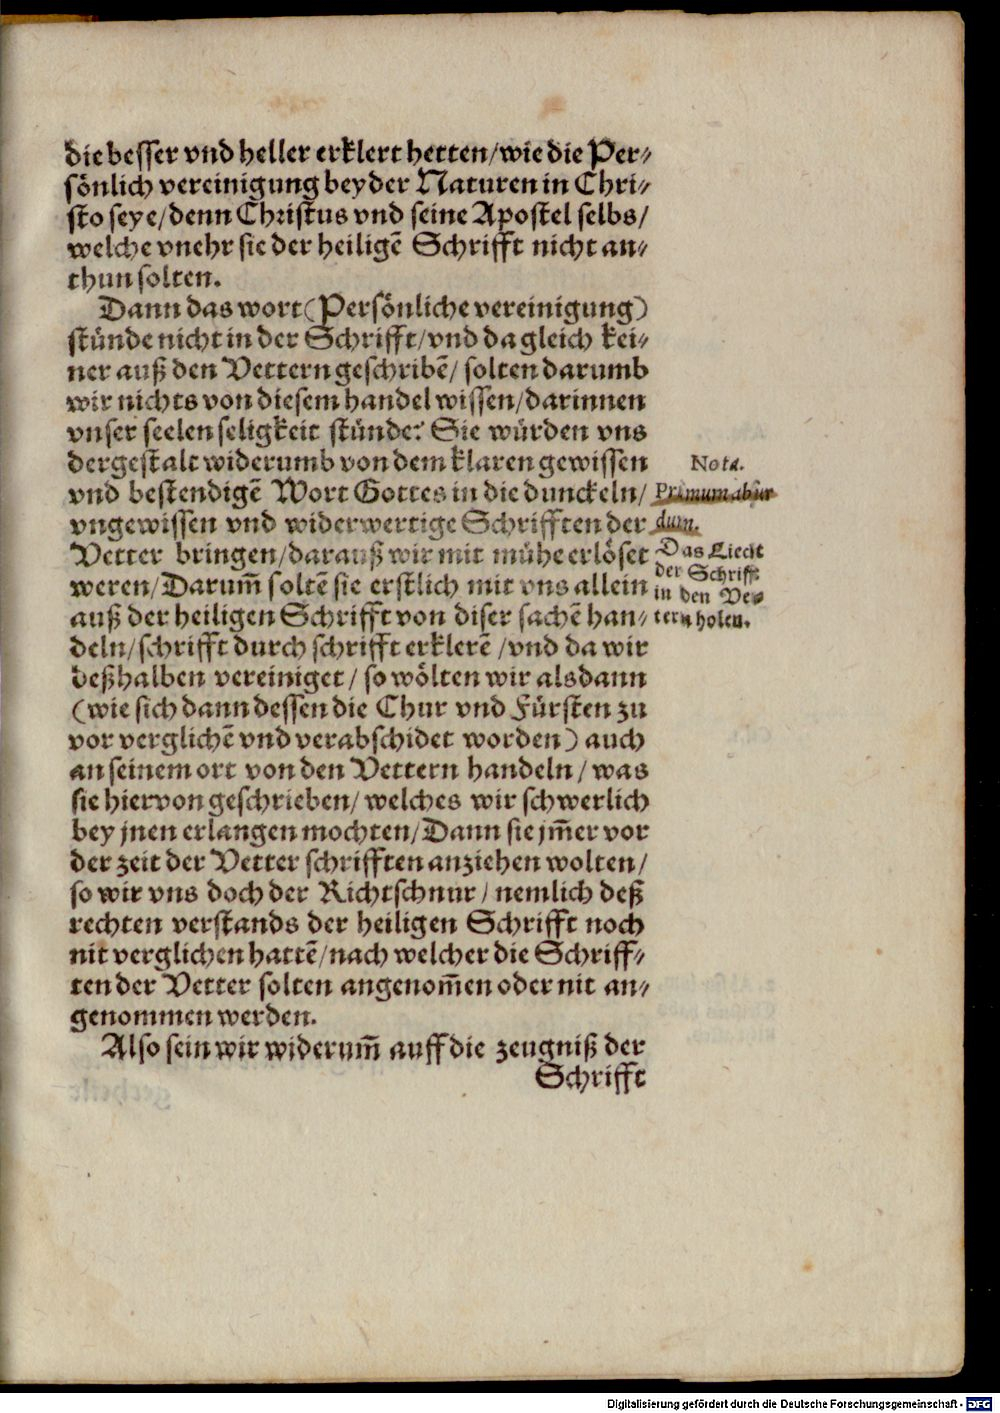 die besser vnd heller erklert hetten/wie die Per⸗
sönlich vereinigung beyder Naturen in Chri⸗
sto seye/denn Christus vnd seine Apostel selbs/
welche vnehr sie der heiligē Schrifft nicht an⸗
thun solten.
Dann das wort (Persönliche vereinigung)
stünde nicht in der Schrifft/vnd da gleich kei⸗
ner auß den Vettern geschribē/ solten darumb
wir nichts von diesem handel wissen/darinnen
vnser seelen seligkeit stünde? Sie würden vns
dergestalt widerumb von dem klaren gewissen
vnd bestendigē Wort Gottes in die dunckeln/
vngewissen vnd widerwertige Schrifften der
Vetter bringen/darauß wir mit mühe erlöset
weren/Darum̄ soltē sie erstlich mit vns allein
auß der heiligen Schrifft von diser sachē han⸗
deln/schrifft durch schrifft erklerē/vnd da wir
deßhalben vereiniget/ so wölten wir alsdann
(wie sich dann dessen die Chur vnd Fürsten zu
vor verglichē vnd verabschidet worden) auch
an seinem ort von den Vettern handeln/was
sie hiervon geschrieben/welches wir schwerlich
bey jnen erlangen mochten/Dann sie jm̄er vor
der zeit der Vetter schrifften anziehen wolten/
so wir vns doch der Richtschnur/nemlich deß
rechten verstands der heiligen Schrifft noch
nit verglichen hattē/nach welcher die Schriff⸗
ten der Vetter solten angenom̄en oder nit an⸗
genommen werden.
Also sein wir widerum̄ auff die zeugniß der
Schrifft
Nota.
Primum absur
dum.
Das Liecht
der Schrifft
in den Ve⸗
tern holen.
Digitalisierung gefördert durch die Deutsche Forschungsgemeinschaft - DFG